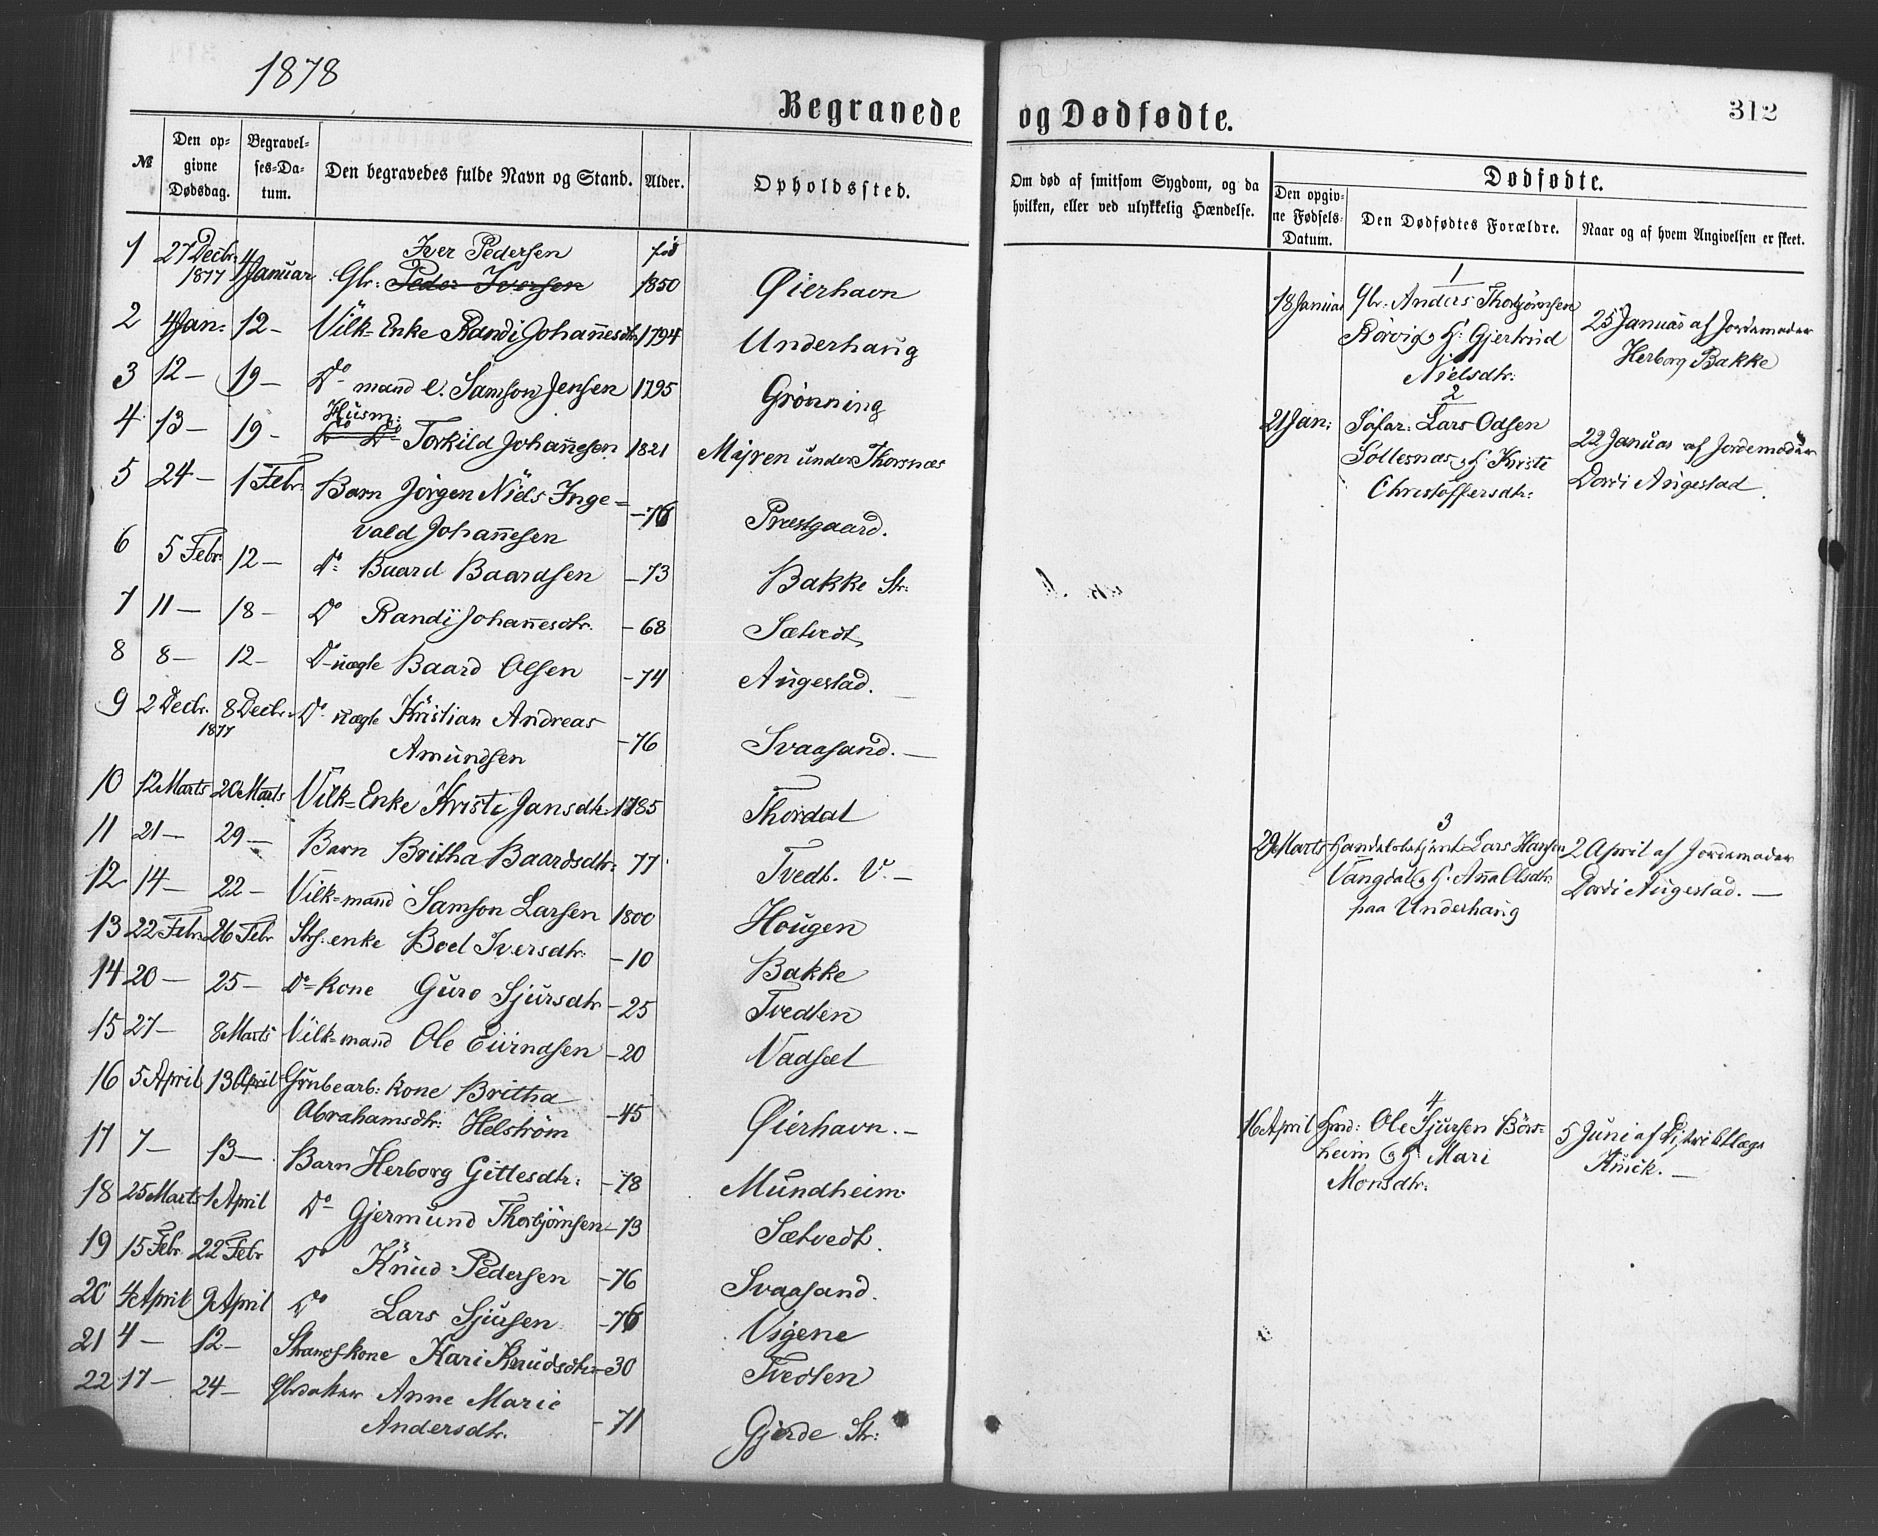 1878
Begravede og Dødfødte.
312
№
Den opgivne Dødsdag.
Begravelses-Datum.
Den begravedes fulde Navn og Stand.
Alder.
Opholdssted.
Om død af smitsom Sygdom, og da hvilken, eller ved ulykkelig Hændelse.
Dødfødte.
Den opgivne Fødsels-Datum.
Den Dødfødtes Forældre.
Naar og af hvem Angivelsen er skeet.
Iver Pedersen
1 27 Decbr. 1877 4 Januar Gbr: Peder Iversen 1850 Øierhavn
2 4 Jan: 12 — Vilk= Enke Randi Johannesdtr 1794 Underhaug
3 12 — 19 — Do mand e. Samson Jensen 1795 Grønning
Husm:
4 13 — 19 — Do Do Torkild Johannesen 1821 Myren under Thorsnæs
5 24 — 1 Febr: Barn Jørgen Niels Inge=
vald Johannesen — 76 Præstgaard.
6 5 Febr: 12 — Do Baard Baardsen — 73 Bakke Str:
7 11 — 18 — Do Randi Johannesdtr. — 68 Sætvedt
8 8 — 12 — Do uægte Baard Olsen — 74 Augestad. —
9 2 Decbr. 8 Decbr. 1877 Do uægte Kristian Andreas
Amundsen — 76 Svaasand. —
10 12 Marts 20 Marts Vilk= Enke Kristi Jansdtr. 1785 Thordal
11 21 — 29 — Barn Britha Baardsdtr: 77 Tvedt. V. —
12 14 — 22 — Vilk= mand Samson Larsen 1800 Hougen
13 22 Febr 26 Febr Strs. enke Boel Iversdtr: — 10 Bakke
14 20 — 25 — Do kone Guro Sjursdtr — 25 Tvedten
15 27 — 8 Marts Vilk= mand Ole Eivindsen — 20 Vadsæl
16 5 April 13 April Grubearb: kone Britha
Abrahamsdtr: Helstrøm — 45 Øierhavn. —
17 7 — 13 — Barn Herborg Gitlesdtr: — 78 Mundheim
18 25 Marts 1 April Do Gjermund Thorbjørnsen — 73 Sætvedt.
19 15 Febr 22 Febr Do Knud Pedersen — 76 Svaasand.
20 4 April 9 April Do Lars Sjursen — 76 Vigene
21 4 — 12 — Strandskone Kari Knudsdtr: — 30 Tvedten
22 17 — 24 — Anne Marie
Andersdtr. — 71 Gjerde Str:
1
18 Januar Gbr. Anders Thorbjørnsen
Rørvig og H. Gjertrud
Nielsdtr.
25 Januar af Jordemoder
Herborg Bakke
2
21 Jan: Søfar: Lars Odsen
Sollesnæs og H. Kristi
Christoffersdtr:
22 Januar af Jordemoder
Dordi Augestad.
3
29 Marts Handelsbetjent Lars Hansen
Vangdal og H. Anna Olsdtr.
paa Underhaug
2 April af Jordemoder
Dordi Augestad. —
4
16 April Hmd: Ole Sjursen Børs=
heim og H. Mari
Monsdtr:
5 Juni af Distriktlæge
—